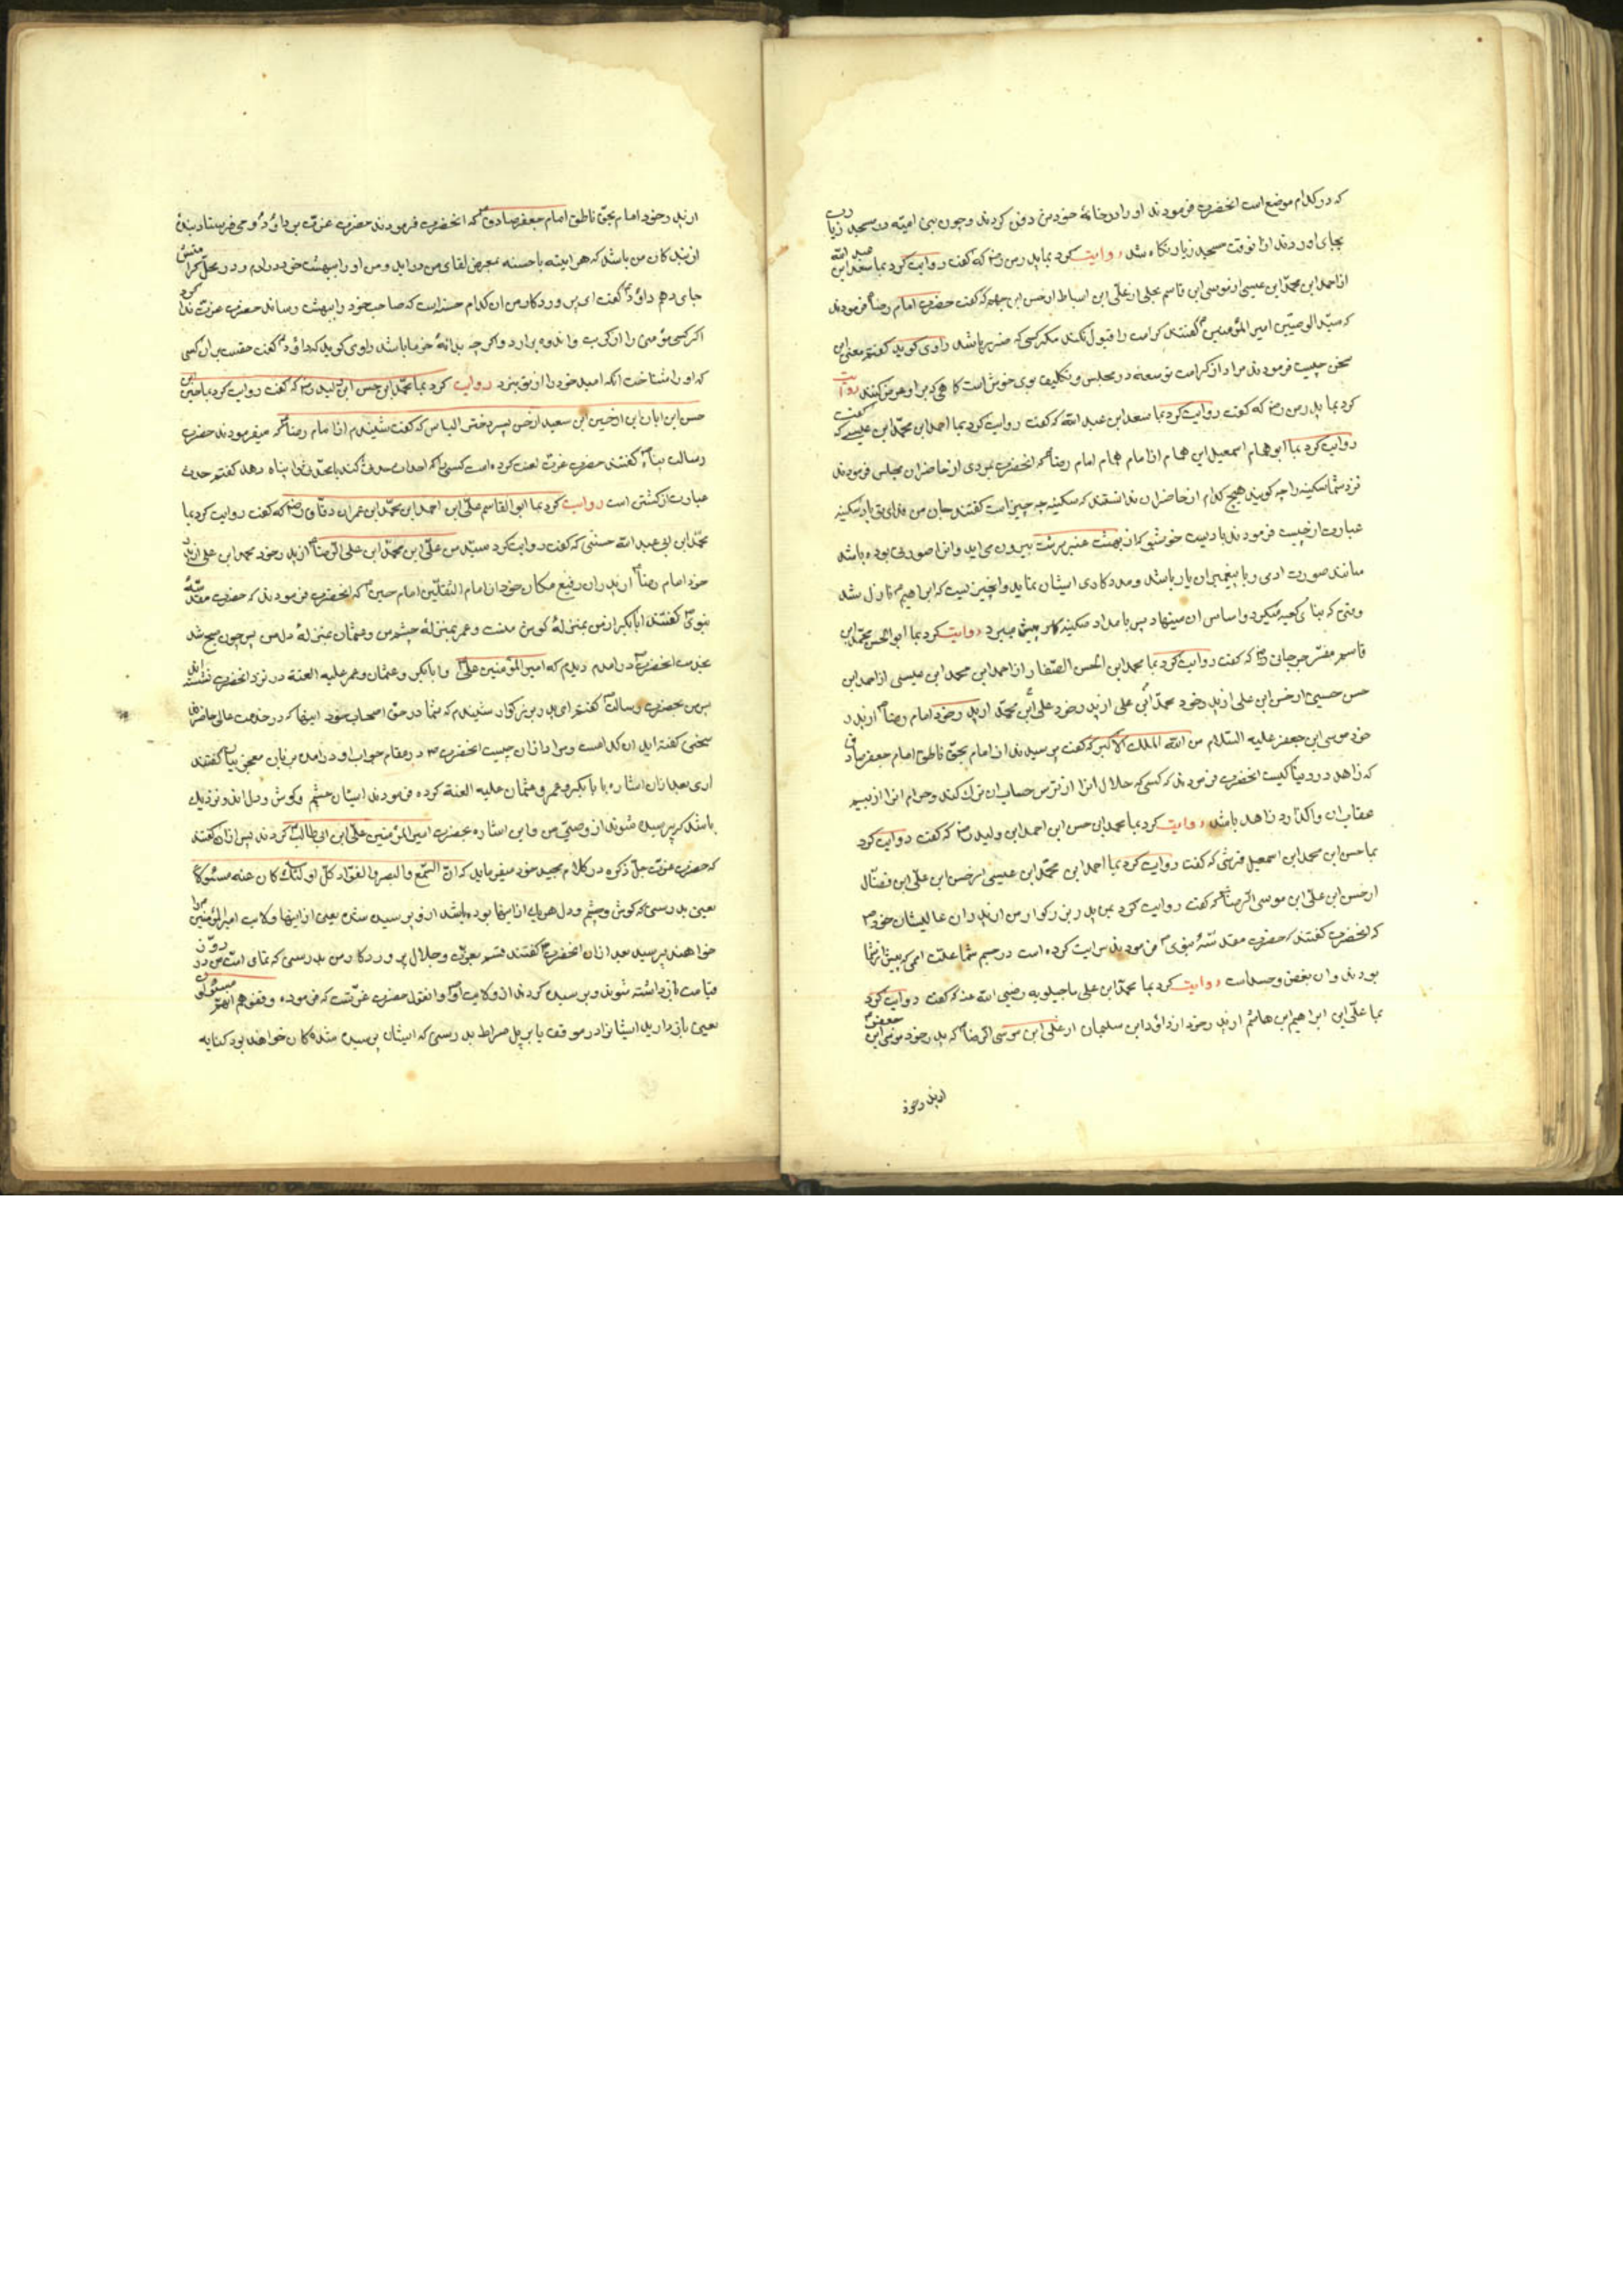 که در کدام موضع است انحضرت فرمودند او را در خانهٔ خود من دفن کردند و چون بنی امیّه در مسجد زیادتی
بجای اوردند ازانوقت مسجد زیارتگاه شد روایت کرد بما پدر من رض که گفت روایت کرد بما سعد ابن عبد الله
از احمد ابن محمّد ابن عیسی از موسی ابن قاسم بجلی از علی ابن اسباط از حسن ابن جهم که گفت حضرت امام رضا ع فرمودند
که سیّد الوصیّین امیر المؤمنین ع گفتند کرامت را قبول نکند مکر کسی که خر باشد راوی کوید گفتم معنی این
سخن چیست فرمودند مراد از کرامت توسعه در مجلس و تکلیف بوی خوش است کاهی که بر او عرض کنند روایت
کرد بما پدر من رض که گفت روایت کرد بما سعد ابن عبد الله که گفت روایت کرد بما احمد ابن محمّد ابن عیسی که گفت
روایت کرد بما ابو همام اسمعیل ابن همام از امام همام امام رضا ع که انحضرت بمردی از حاضران مجلس فرمودند
نزد شما سکینه را چه کویند هیچ کدام از حاضران ندانستند که سکینه چه چیز است گفتند جان من فدای تو باد سکینه
عبارت از چیست فرمودند بادیست خوشبو که از بهشت عنبر سرشت بیرون می اید و انرا صورتی بوده باشد
مانند صورت ادمی و با پیغمبران یار باشد و مددکاری ایشان نماید و انچیزیست که ابراهیم ع نازل شد
وقتی که بنای کعبه میکرد و اساس ان مینهاد پس بامداد سکینه کار پیش میبرد روایت کرد بما ابو الحسن محمّد ابن
قاسم مفسّر جرجانی رض که گفت روایت کرد بما محمد ابن الحسن الصّفار از احمد ابن محمد ابن عیسی از احمد ابن
حسن حسینی از حسن ابن علی از پدر خود محمّد ابن علی از پدر خود علی ابن محمّد از پدر خود امام رضا ع از پدر
خود موسی ابن جعفر علیه السّلام من الله الملک الاکبر که گفت پرسیدند از امام بحقّ ناطق امام جعفر صادق
که زاهد در دنیا کیست انحضرت فرمودند که کسی که حلال انرا از ترس حساب ان ترک کند و حرام انرا از بیم
عقاب ان واگذارد زاهد باشد روایت کرد بما محمد ابن حسن ابن احمد ابن ولید رض که گفت روایت کرد
بما حسن ابن محمد ابن اسمعیل قرشی که گفت روایت کرد بما احمد ابن محمّد ابن عیسی از حسن ابن علی ابن فضّال
از حسن ابن علی ابن موسی الرضا ع که گفت روایت کرد بمن پدر بزرکوار من از پدران عالیشان خود
که انحضرت گفتند که حضرت مقدسهٔ نبوی ص فرمودند سرایت کرده است در جسم شما علت اممی که پیش از شما
بودند و ان بغض و حسد است روایت کرد بما محمد ابن علی ماجیلویه رضی الله عنه که گفت روایت کرد
بما علی ابن ابراهیم ابن هاشم از پدر خود از داؤد ابن سلیمان از علی ابن موسی الرضا ع که پدر خود موسی ابن جعفر
از پدر خود
از پدر خود امام بحقّ ناطق امام جعفر صادق ع که انحضرت فرمودند حضرت عزّت بر داؤد ع وحی فرستاد بندهٔ
از بندکان من باشد که هر اینه با حسنه بمعرض لقای من در اید و من او را ببهشت خود در ارم و در محلّ کرامتش
جای دهم داؤد ع گفت ای پروردکار من ان کدام حسنه است که صاحب خود را ببهشت رساند حضرت عزت ندا کرد
اکر کسی مؤمنی را از کرب و اندوه بر ارد و اکرچه بدانهٔ خرما باشد راوی کوید که داؤد ع گفت حقست بر ان کسی
که او را شناخت انکه امید خود را از تو نبرد روایت کرد بما محمّد ابن حسن ابن ولید رض که گفت روایت کرد بما حسین ابن
حسن ابن ابان از حسین ابن سعید از حسن پسر دختر الیاس که گفت شنیدم از امام رضا ع که میفرمودند حضرت
رسالت پناه ص گفتند حضرت عزت لعنت کرده است کسی را که احداث حدث کند یا محدثی را پناه دهد گفتم حدث
عبارت از کشتن است روایت کرد بما ابو القاسم علی ابن احمد ابن محمّد ابن عمران دقّاق رض که گفت روایت کرد بما
محمّد ابن ابی عبد الله حسنی که گفت روایت کرد سیّد من علی ابن محمّد ابن علی الرّضا ع از پدر خود محمد ابن علی از پدر
خود امام رضا ع از پدران رفیع مکان خود از امام الثقلین امام حسین ع که انحضرت فرمودند که حضرت مقدسهٔ
نبوی ص گفتند ابابکر از من بمنزلهٔ کوش منست و عمر بمنزلهٔ چشم من و عثمان بمنزلهٔ دل من پس چون صبح شد
بخدمت انحضرت در امدم دیدم که امیر المؤمنین علی ع و ابابکر و عثمان و عمر علیه العنة در نزد انحضرت نشسته اند
پس من بحضرت رسالت گفتم ای پدر بزرکوار شنیدم که شما در حق اصحاب خود اینها که در خدمت عالی حاضراند
سخنی گفته اید ان کدامست و مراد از ان چیست انحضرت ص در مقام جواب او در امدن بزبان معجز بیان گفتند
اری بعد ازان اشاره با بابکر و عمر و عثمان علیه العنة کرده فرمودند ایشان چشم و کوش و دل اند و نزدیک
باشد که پرسیده شوند از وصیّ من و این اشاره بحضرت امیر المؤمنین علی ابن ابی طالب ع کردند پس ازان گفتند
که حضرت عزت جلّ ذکره در کلام مجید خود میفرماید که انّ السّمع و البصر و الفؤاد کلّ اولئک کان عنه مسئولا
یعنی بدرستی که کوش و چشم و دل هر یک از اینها بوده باشد ازو پرسیده شده یعنی از اینها ولایت امیر المؤمنین را
خواهند پرسید بعد ازان انحضرت گفتند قسم بعزّت و جلال پروردکار من بدرستی که تمامی امت من در روز
قیامت بازداشته شوند و پرسیده کردند از ولایت او و انقول حضرت عزّتست که فرموده و قفوهم انهم مسئولون
یعنی بازدارید ایشانرا در موقف یا بر پل صراط بدرستی که ایشان پرسیده شدهکان خواهند بود کنایه